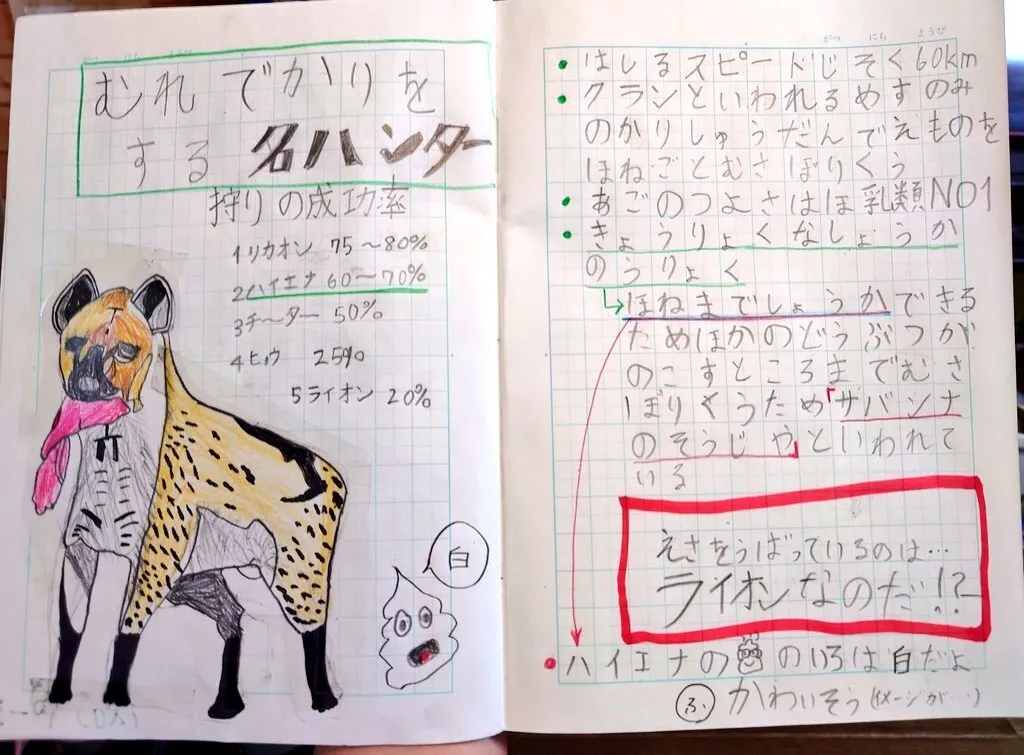 むれでかりを
する名ハンター
狩りの成功率
1リカオン 75〜80%
2ハイエナ 60〜70%
3チーター 50%
4ヒョウ 25%
5ライオン 20%
白
がつ にち ようび
・はしるスピードじそく60km
・クランといわれるめすのみ
のかりしゅうだんでえものを
ほねごとむさぼりくう
・あごのつよさはほ乳類NO1
・きょうりょくなしょうか
のうりょく
ほねまでしょうかできる
ためほかのどうぶつが
のこすところまでむさ
ぼりくうため「サバンナ
のそうじや」といわれて
いる
えさをうばっているのは…
ライオンなのだ!?
・ハイエナの💩のいろは白だよ
ふ かわいそう(イメージが…)